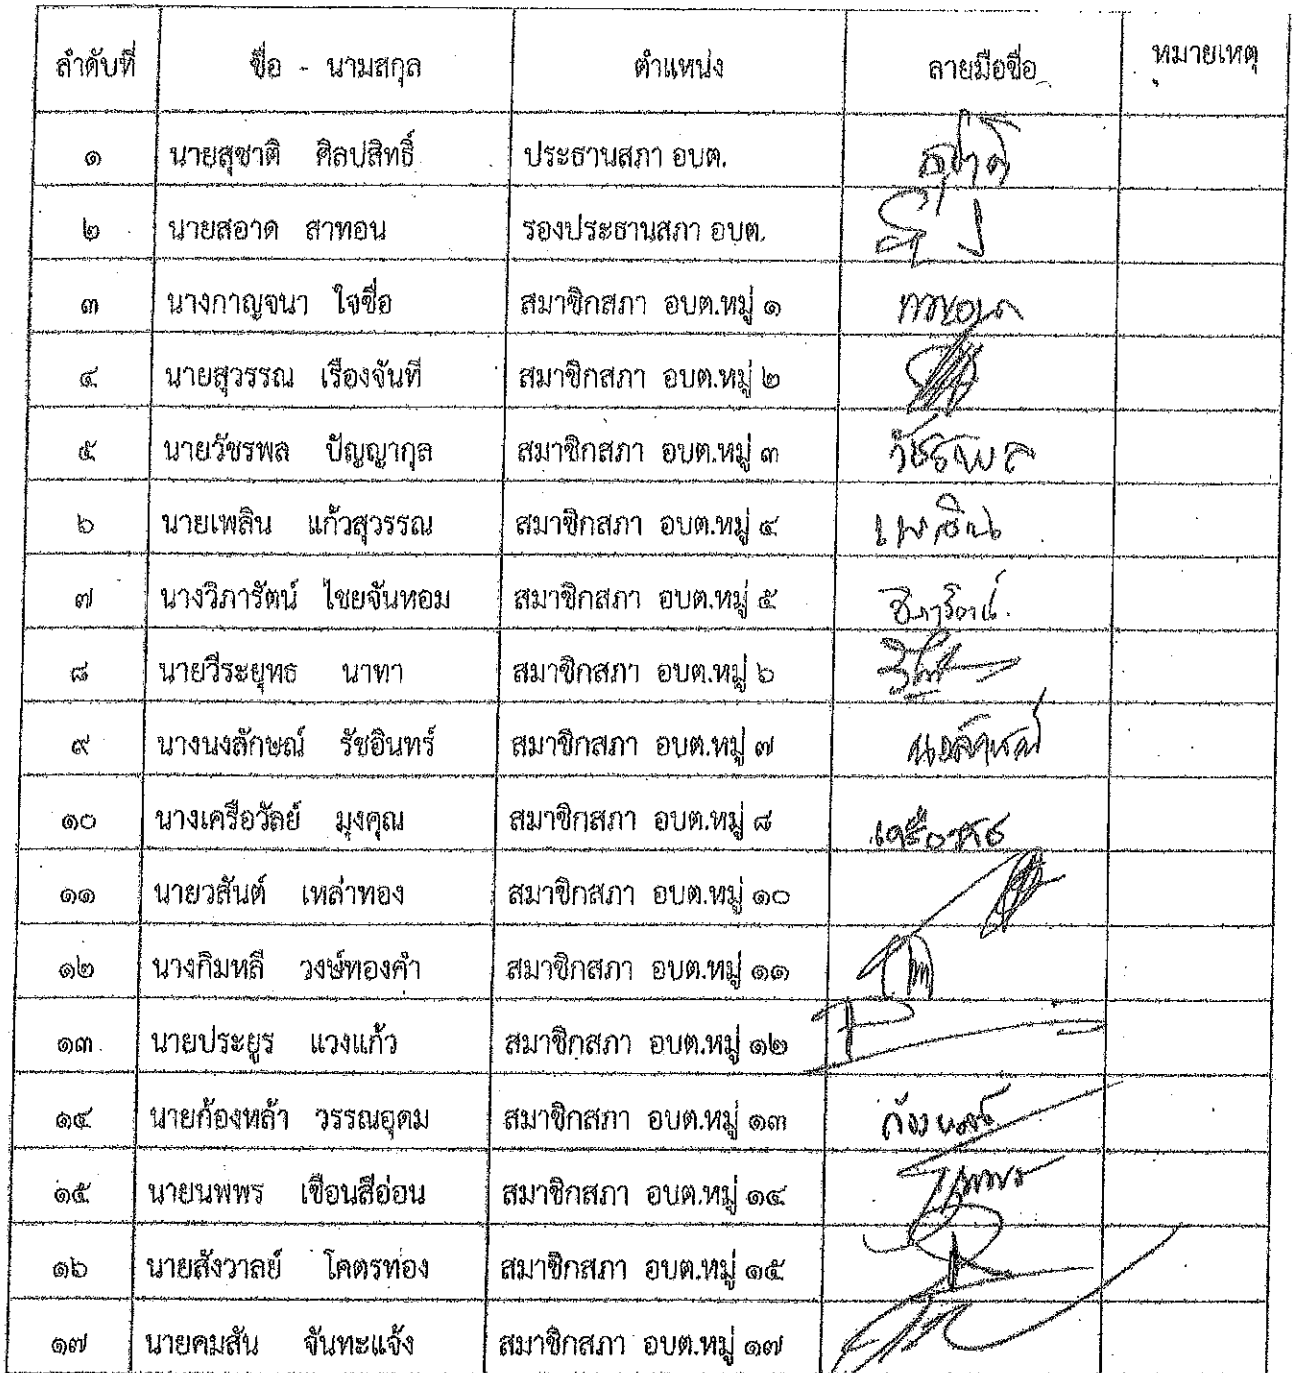 ลำดับที่ ชื่อ - นามสกุล ตำแหน่ง ลายมือชื่อ หมายเหตุ
๑ นายสุชาติ ศิลปสิทธิ์ ประธานสภา อบต. สุชาติ
๒ นายสอาด สาทอน รองประธานสภา อบต.
๓ นางกาญจนา ใจซื่อ สมาชิกสภา อบต.หมู่ ๑
๔ นายสุวรรณ เรืองจันที สมาชิกสภา อบต.หมู่ ๒
๕ นายวัชรพล ปัญญากุล สมาชิกสภา อบต.หมู่ ๓ วัชรพล
๖ นายเพลิน แก้วสุวรรณ สมาชิกสภา อบต.หมู่ ๔ เพลิน
๗ นางวิภารัตน์ ไชยจันหอม สมาชิกสภา อบต.หมู่ ๕ วิภารัตน์
๘ นายวีระยุทธ นาทา สมาชิกสภา อบต.หมู่ ๖
๙ นางนงลักษณ์ รัชอินทร์ สมาชิกสภา อบต.หมู่ ๗ นงลักษณ์
๑๐ นางเครือวัลย์ มุงคุณ สมาชิกสภา อบต.หมู่ ๘ เครือวัลย์
๑๑ นายวสันต์ เหล่าทอง สมาชิกสภา อบต.หมู่ ๑๐
๑๒ นางกิมหลี วงษ์ทองคำ สมาชิกสภา อบต.หมู่ ๑๑
๑๓ นายประยูร แวงแก้ว สมาชิกสภา อบต.หมู่ ๑๒
๑๔ นายก้องหล้า วรรณอุดม สมาชิกสภา อบต.หมู่ ๑๓ ก้องหล้า
๑๕ นายนพพร เขื่อนสีอ่อน สมาชิกสภา อบต.หมู่ ๑๔
๑๖ นายสังวาลย์ โคตรท่อง สมาชิกสภา อบต.หมู่ ๑๕
๑๗ นายคมสัน จันทะแจ้ง สมาชิกสภา อบต.หมู่ ๑๗